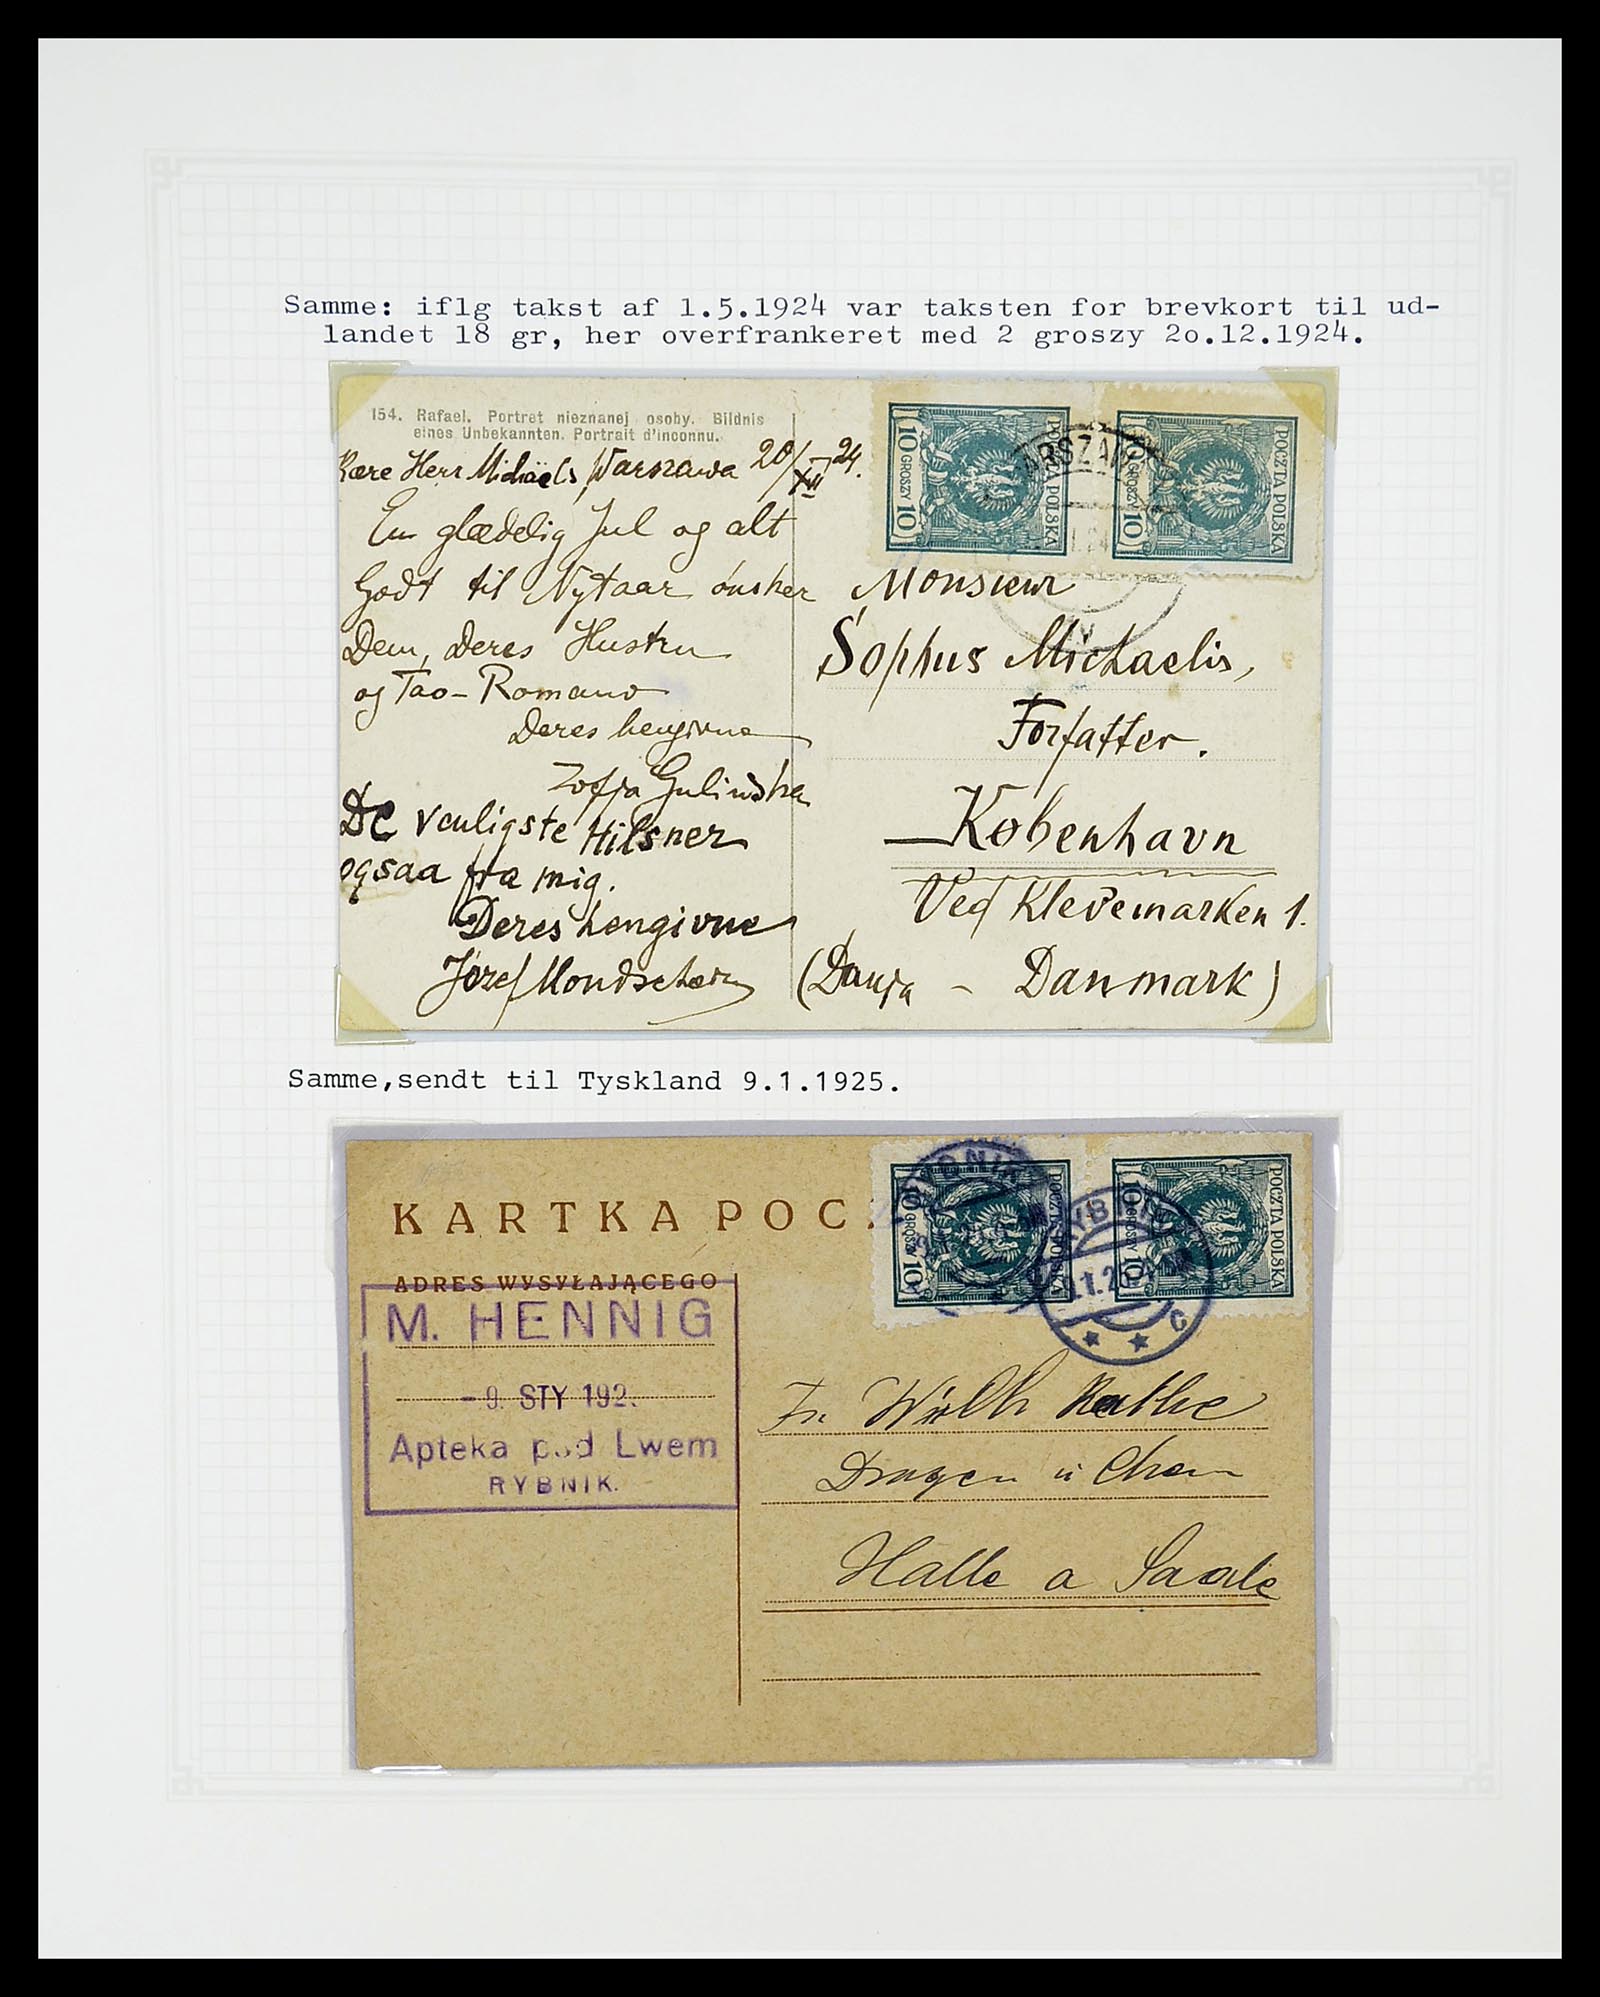 Samme: iflg takst af 1.5.1924 var taksten for brevkort til ud-
landet 18 gr, her overfrankeret med 2 groszy 2o.12.1924.
154. Rafael. Portret nieznanej osoby. Bildnis
eines Unbekannten. Portrait d'inconnu.
Kære Herr Michaëlis, Warszawa 20/XII 24.
En glædelig Jul og alt
Godt til Nytaar ønsker
Dem, Deres Hustru
og Tao-Romano
Deres hengivne
Zofja Gulinska
De venligste Hilsner
ogsaa fra mig.
Deres hengivne
Józef Mondschein
10 GROSZY 10
POCZTA POLSKA
10 GROSZY 10
POCZTA POLSKA
ARSZAW
Monsieur
Sophus Michaelis,
Forfatter.
København
Ved Klevemarken 1.
(Danja - Danmark)
Samme,sendt til Tyskland 9.1.1925.
KARTKA POC
ADRES WYSYŁAJĄCEGO
M. HENNIG
-9. STY 192
Apteka pod Lwem
RYBNIK.
10 GROSZY 10
POCZTA POLSKA
10 GROSZY 10
POCZTA POLSKA
RYBNIK
C
Drogen u Chem
Halle a Saale